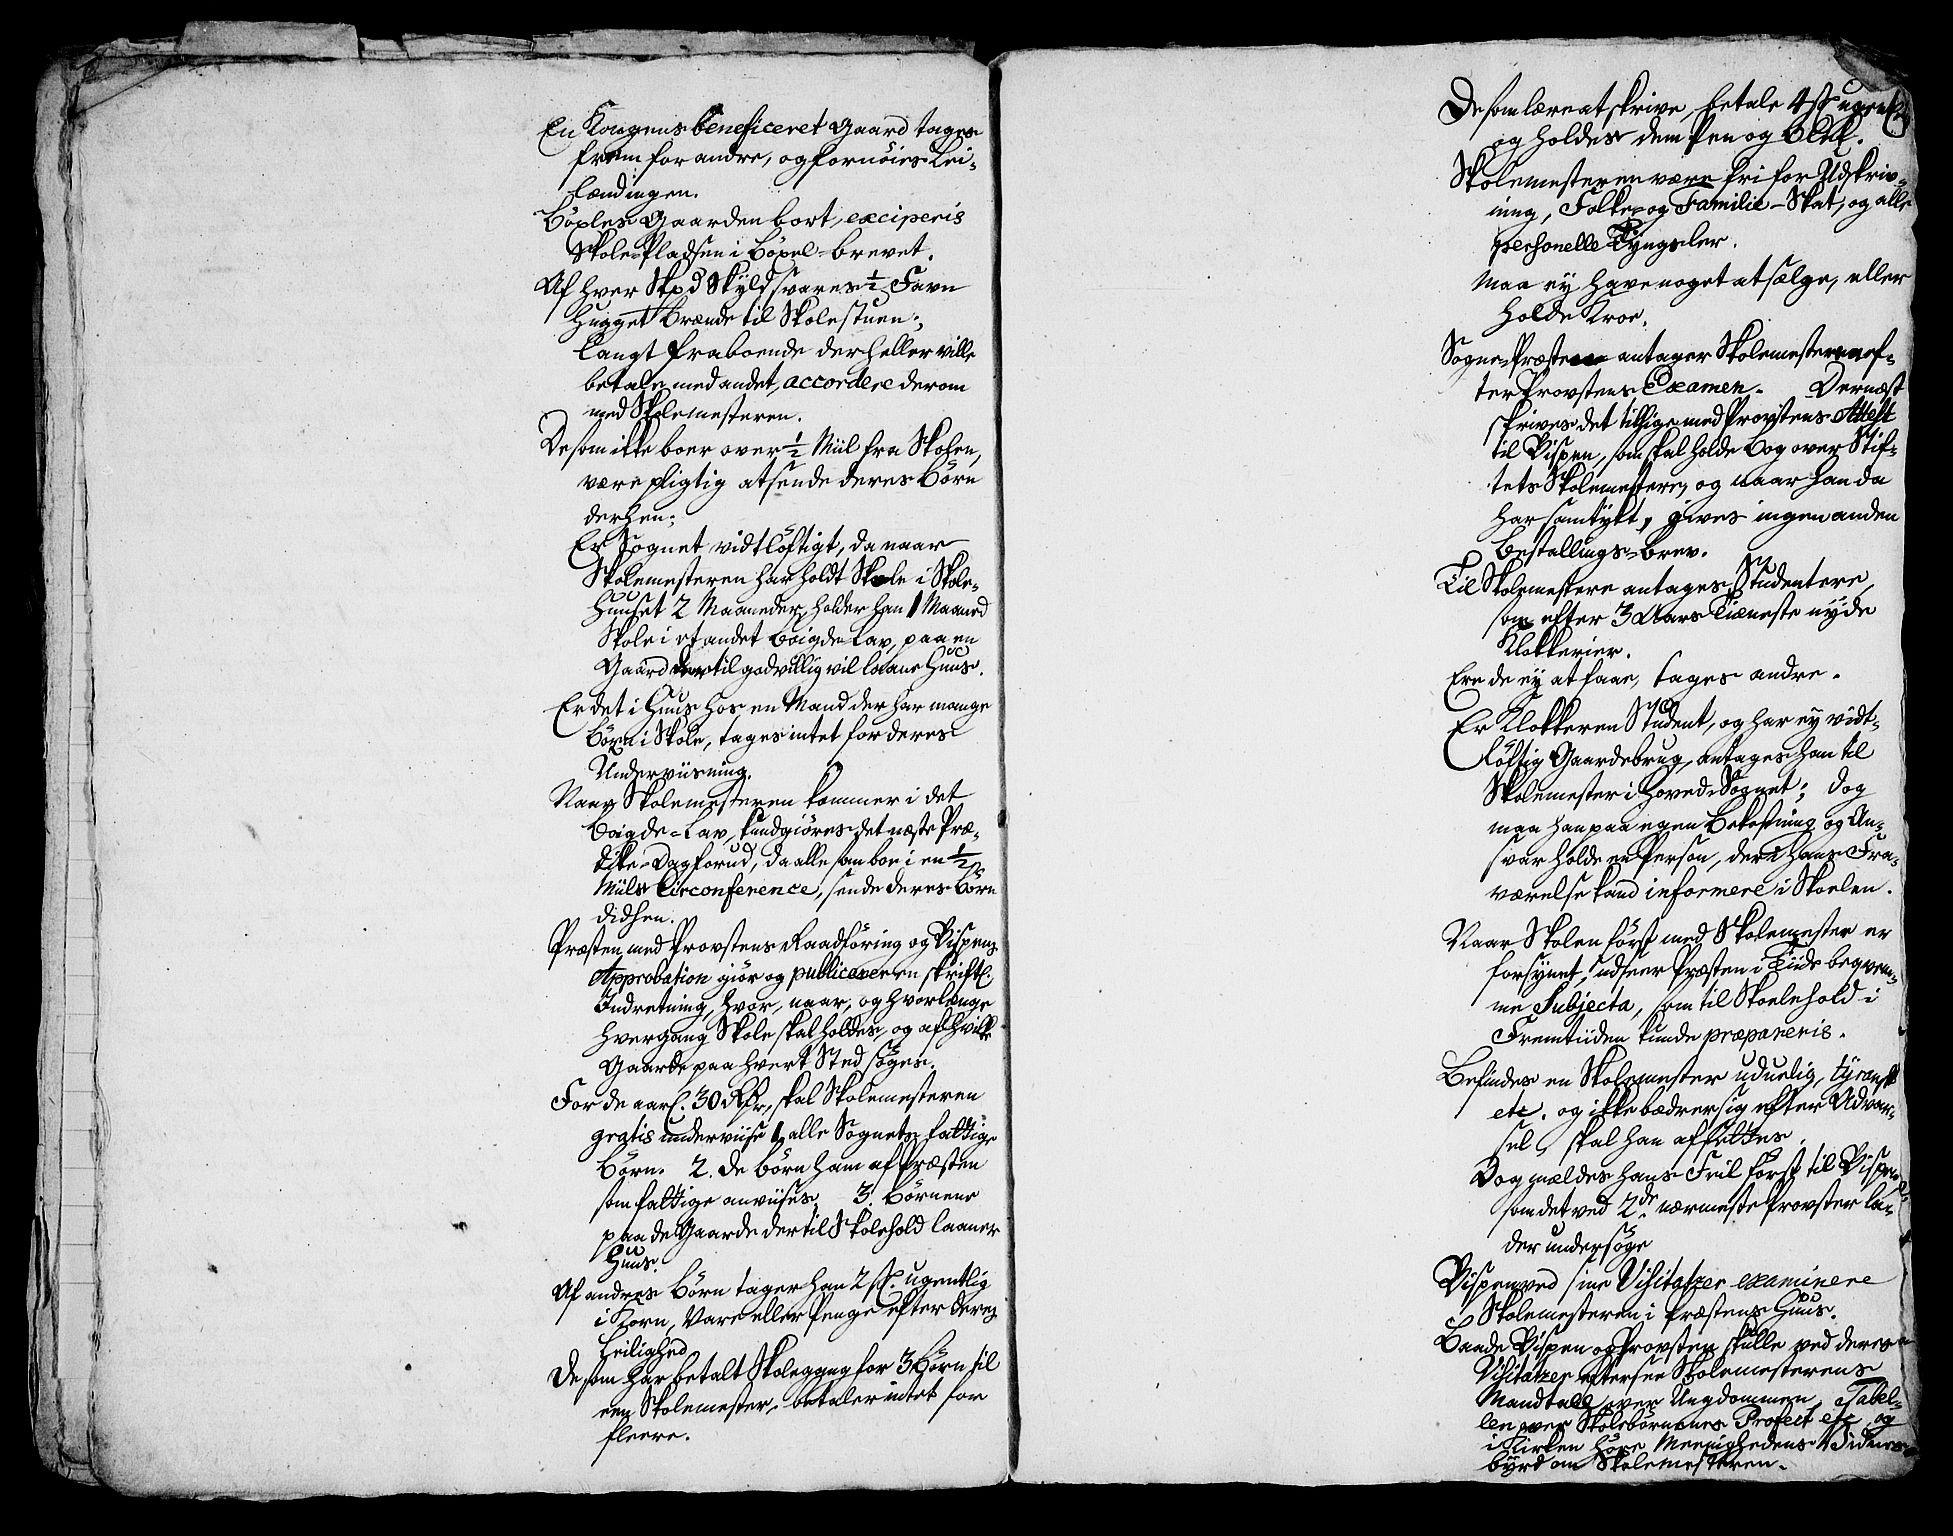 En Kongens beneficeret Gaard tages
frem for andre, og fornøies Lei-
lændingen.
Böxles Gaarden bort, exciperis
Skole-Pladsen i Böxel-brevet.
Af hver Skpd Skyld svares ½ Favn
Hugget Brænde til Skolestuen;
Langt fraboende der heller ville
betale med andet, accordere derom
med Skolemesteren.
De som ikke boer over ½ Miil fra Skolen,
være pligtig at sende deres Börn
derhen;
Er Sognet vidtlöftigt, da naar
Skolemesteren har holdt Skole i Skole-
Huuset 2 Maaneder, holder han 1 Maaned
Skole i et andet Böigde-Lav, paa en
Gaard der til godvillig vil laane Huus.
Er det i Huus hos en Mand der har mange
Börn i Skole, tages intet for deres
Underviisning.
Naar Skolemesteren kommer i det
Böigde-Lav, kundgiöres det næste Præ-
dike-Dag forud, da alle som boe i en ½
Miils Circonference, sende deres Börn
didhen.
Præsten med Provstens Raadföring og Bispens
Approbation giör og publicerer en skriftl.
Indretning, hvor, naar, og hvorlænge
hvergang Skole skal holdes, og af hvilke
Gaarde paa hvert Sted söges.
For de aarl. 30 Rdr, skal Skolemesteren
gratis underviise 1. alle Sognets fattige
Börn. 2. de Börn ham af Præsten
som fattige anviises, 3. Börnene
paa de Gaarde der til Skolehold laaner
Huus.
Af andres Börn tager han 2 sk. ugentlig
i Korn, Vare eller Penge efter deres
Leilighed
De som har betalt Skolegang for 3 Börn til
een Skolemester, betaler intet for
fleere.
De som lære at skrive, betale 4 sk ugentl.
og holdes dem Pen og Blek.
Skolemesteren være fri for Udskriv-
ning, Folke- og Familie-Skat, og alle
personelle Tyngsler.
Maa ey have noget at sælge, eller
holde Kroe.
Sogne-Præsten antager Skolemesteren ef-
ter Provstens Examen. Dernæst
skrives det tillige med Provstens Attest
til Bispen, som skal holde Bog over Stif-
tets Skolemestere, og naar han da
har samtykt, gives ingen anden
Bestallings-brev.
Til Skolemestere antages Studentere,
som efter 3 Aars Tieneste nyde
Klokkerier.
Ere de ey at faae, tages andre.
Er Klokkeren Student, og har ey vidt-
löftig Gaardebrug, antages han til
Skolemester i Hoved-Sognet; dog
maa han paa egen Bekostning og An-
svar holde en Person, der i hans Fra-
værelse kand informere i Skolen.
Naar Skolen först med Skolemester er
forsynet, udseer Præsten i Tiide beqvem-
me Subjecta, som til Skolehold i
Fremtiiden kunde præpareris.
Befindes en Skolemester uduelig, tyransk
etc. og ikke bædrer sig efter Advar-
sel, skal han afsættes.
Dog mældes hans Feil först til Bispen
som det ved 2de nærmeste Provster la-
der undersöge
Bispen ved sine Visitatzer examinere
Skolemesteren i Præstens Huus.
Baade Bispen og Provsten skulle ved deres
Visitatzer eftersee Skolemesterens
Mandtall over Ungdommen, Tabel-
len over Skolebörnenes Profect etc. og
i Kirken höre Meenighedens Vidnes-
byrd om Skolemesteren.